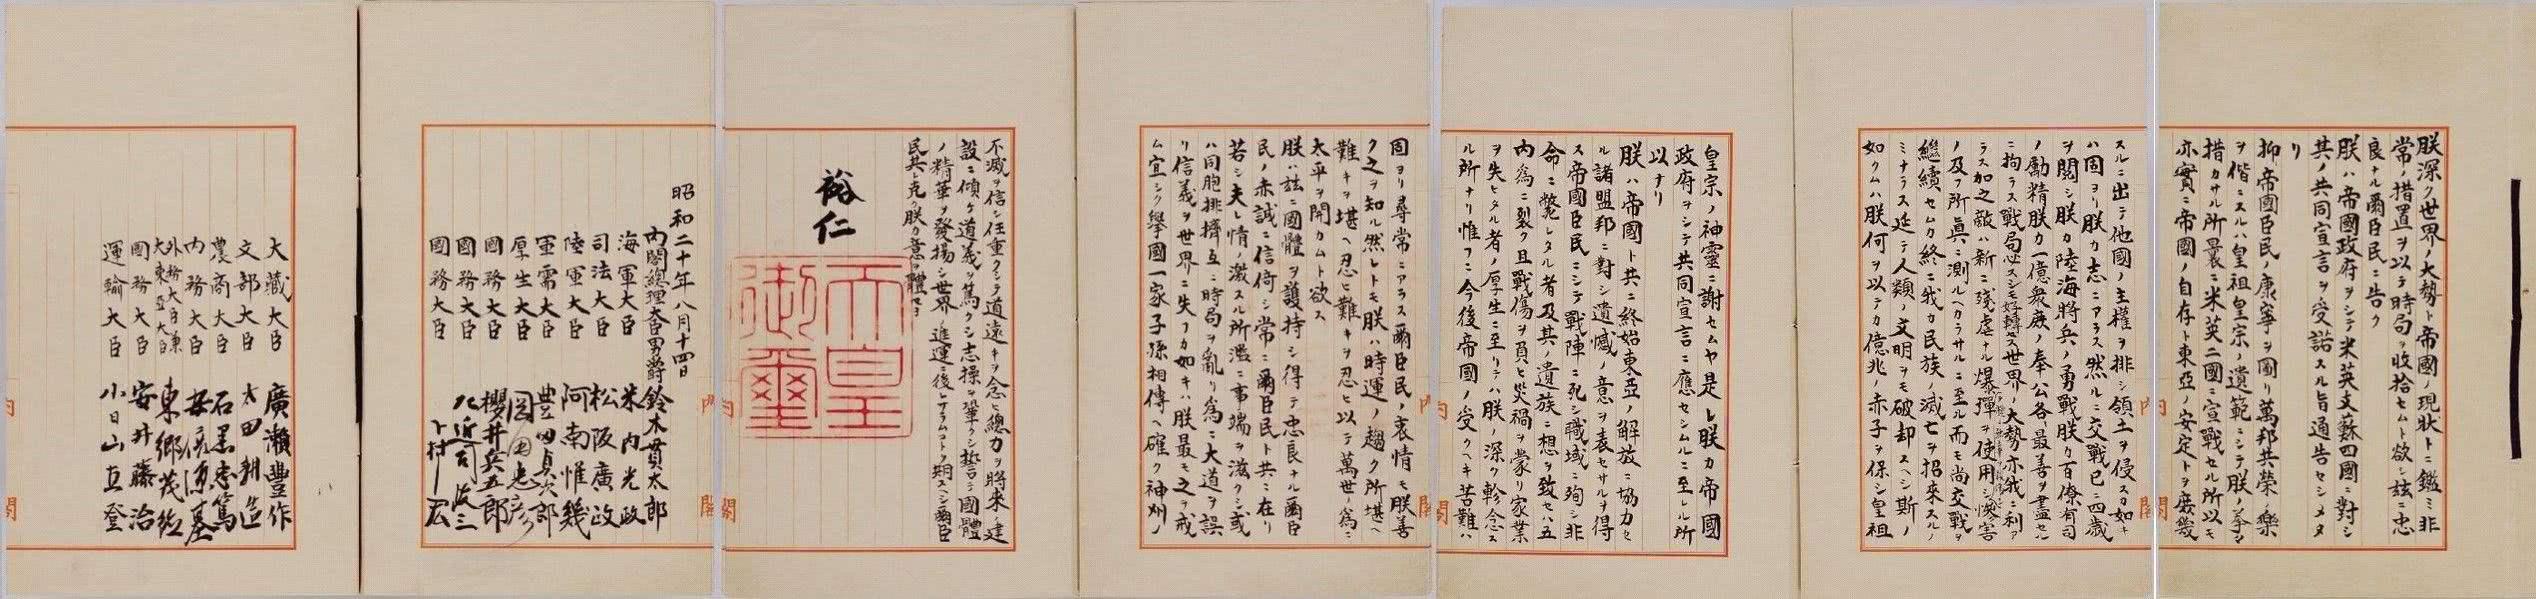 朕深ク世界ノ大勢ト帝國ノ現狀トニ鑑ミ非
常ノ措置ヲ以テ時局ヲ收拾セムト欲シ茲ニ忠
良ナル爾臣民ニ告ク
朕ハ帝國政府ヲシテ米英支蘇四國ニ對シ
其ノ共同宣言ヲ受諾スル旨通告セシメタ
リ
抑〻帝國臣民ノ康寧ヲ圖リ萬邦共榮ノ樂
ヲ偕ニスルハ皇祖皇宗ノ遺範ニシテ朕ノ拳〻
措カサル所曩ニ米英二國ニ宣戰セル所以モ
亦實ニ帝國ノ自存ト東亞ノ安定トヲ庶幾
スルニ出テ他國ノ主權ヲ排シ領土ヲ侵スカ如キ
ハ固ヨリ朕カ志ニアラス然ルニ交戰已ニ四歲
ヲ閱シ朕カ陸海將兵ノ勇戰朕カ百僚有司
ノ勵精朕カ一億衆庶ノ奉公各〻最善ヲ盡セル
ニ拘ラス戰局必スシモ好轉セス世界ノ大勢亦我ニ利ア
ラス加之敵ハ新ニ殘虐ナル爆彈ヲ使用シテ頻ニ無辜ヲ殺傷シ慘害
ノ及フ所眞ニ測ルヘカラサルニ至ル而モ尚交戰ヲ
繼續セムカ終ニ我カ民族ノ滅亡ヲ招來スルノ
ミナラス延テ人類ノ文明ヲモ破却スヘシ斯ノ
如クムハ朕何ヲ以テカ億兆ノ赤子ヲ保シ皇祖
皇宗ノ神靈ニ謝セムヤ是レ朕カ帝國
政府ヲシテ共同宣言ニ應セシムルニ至レル所
以ナリ
朕ハ帝國ト共ニ終始東亞ノ解放ニ協力セ
ル諸盟邦ニ對シ遺憾ノ意ヲ表セサルヲ得
ス帝國臣民ニシテ戰陣ニ死シ職域ニ殉シ非
命ニ斃レタル者及其ノ遺族ニ想ヲ致セハ五
內爲ニ裂ク且戰傷ヲ負ヒ災禍ヲ蒙リ家業
ヲ失ヒタル者ノ厚生ニ至リテハ朕ノ深ク軫念ス
ル所ナリ惟フニ今後帝國ノ受クヘキ苦難ハ
固ヨリ尋常ニアラス爾臣民ノ衷情モ朕善
ク之ヲ知ル然レトモ朕ハ時運ノ趨ク所堪ヘ
難キヲ堪ヘ忍ヒ難キヲ忍ヒ以テ萬世ノ爲ニ
太平ヲ開カムト欲ス
朕ハ茲ニ國體ヲ護持シ得テ忠良ナル爾臣
民ノ赤誠ニ信倚シ常ニ爾臣民ト共ニ在リ
若シ夫レ情ノ激スル所濫ニ事端ヲ滋クシ或
ハ同胞排擠互ニ時局ヲ亂リ爲ニ大道ヲ誤
リ信義ヲ世界ニ失フカ如キハ朕最モ之ヲ戒
ム宜シク擧國一家子孫相傳ヘ確ク神州ノ
不滅ヲ信シ任重クシテ道遠キヲ念ヒ總力ヲ將來ノ建
設ニ傾ケ道義ヲ篤クシ志操ヲ鞏クシ誓テ國體
ノ精華ヲ發揚シ世界ノ進運ニ後レサラムコトヲ期スヘシ爾臣
民其レ克ク朕カ意ヲ體セヨ
裕仁
天皇
御璽
昭和二十年八月十四日
內閣總理大臣男爵 鈴木貫太郎
海軍大臣 米內光政
司法大臣 松阪廣政
陸軍大臣 阿南惟幾
軍需大臣 豊田貞次郎
厚生大臣 岡田忠彥
國務大臣 櫻井兵五郎
國務大臣 左近司政三
國務大臣 下村宏
大藏大臣 廣瀨豐作
文部大臣 太田耕造
農商大臣 石黑忠篤
內務大臣 安倍源基
外務大臣兼
大東亞大臣 東鄕茂德
國務大臣 安井藤治
運輸大臣 小日山直登
內閣
內閣
內閣
內閣
內閣